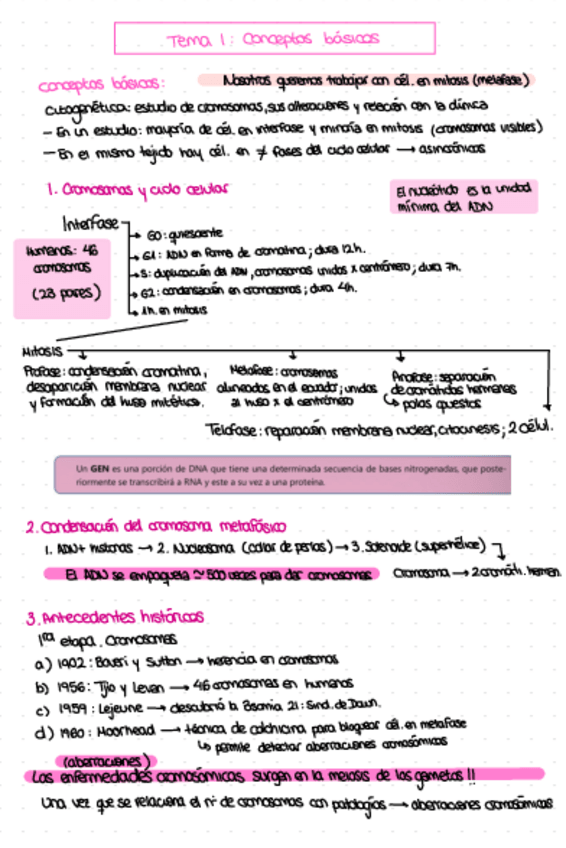 Tema 1: Conceptos básicos
Conceptos básicos:
Nosotros queremos trabajar con cél. en mitosis (metafase)
Citogenética: estudio de cromosomas, sus alteraciones y relación con la clínica
- En un estudio: mayoría de cél. en interfase y minoría en mitosis (cromosomas visibles)
- En el mismo tejido hay cél. en ≠ fases del ciclo celular → asincrónicas
1. Cromosomas y ciclo celular
El nucleótido es la unidad
mínima del ADN
Interfase
G0: quiescente
G1: ADN en forma de cromatina; dura 12h.
S: duplicación del ADN, cromosomas unidos x centrómero; dura 7h.
G2: condensación en cromosomas; dura 4h.
1h. en mitosis
Humanos: 46
cromosomas
(23 pares)
Mitosis
Profase: condensación cromatina,
desaparición membrana nuclear
y formación del huso mitótico.
Metafase: cromosomas
alineados en el ecuador; unidos
al huso x el centrómero
Anafase: separación
de cromátidas hermanas
polos opuestos
Telofase: reparación membrana nuclear, citocinesis; 2 célul.
Un GEN es una porción de DNA que tiene una determinada secuencia de bases nitrogenadas, que poste-
riormente se transcribirá a RNA y este a su vez a una proteína.
2. Condensación del cromosoma metafásico
1. ADN + histonas → 2. Nucleosoma (collar de perlas) → 3. Solenoide (superhélice)
El ADN se empaqueta ≃ 500 veces para dar cromosomas
Cromosoma → 2 cromát. herman.
3. Antecedentes históricos
1ra etapa. Cromosomas
a) 1902: Boveri y Sutton → herencia en cromosomas
b) 1956: Tjio y Levan → 46 cromosomas en humanos
c) 1959: Lejeune → descubrió la trisomía 21: Sínd. de Down.
d) 1960: Moorhead → técnica de colchicina para bloquear cél. en metafase
↳ permite detectar aberraciones cromosómicas
(aberraciones)
Las enfermedades cromosómicas surgen en la meiosis de los gametos !!
Una vez que se relaciona el nº de cromosomas con patologías → aberraciones cromosómicas